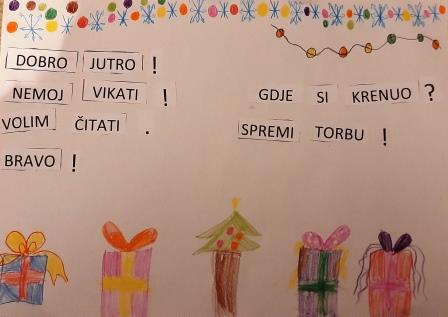 DOBRO JUTRO !
NEMOJ VIKATI !
VOLIM ČITATI .
BRAVO !
GDJE SI KRENUO ?
SPREMI TORBU !